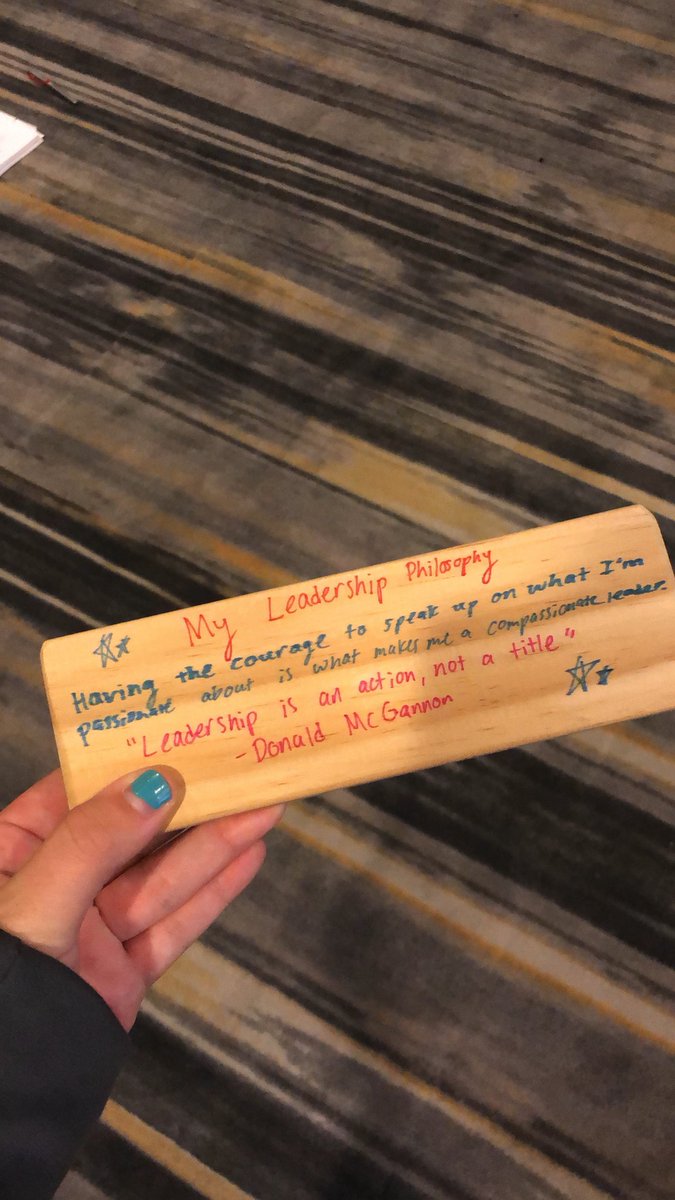 My Leadership Philosophy
Having the courage to speak up on what I'm
passionate about is what makes me a compassionate leader.
"Leadership is an action, not a title"
-Donald McGannon